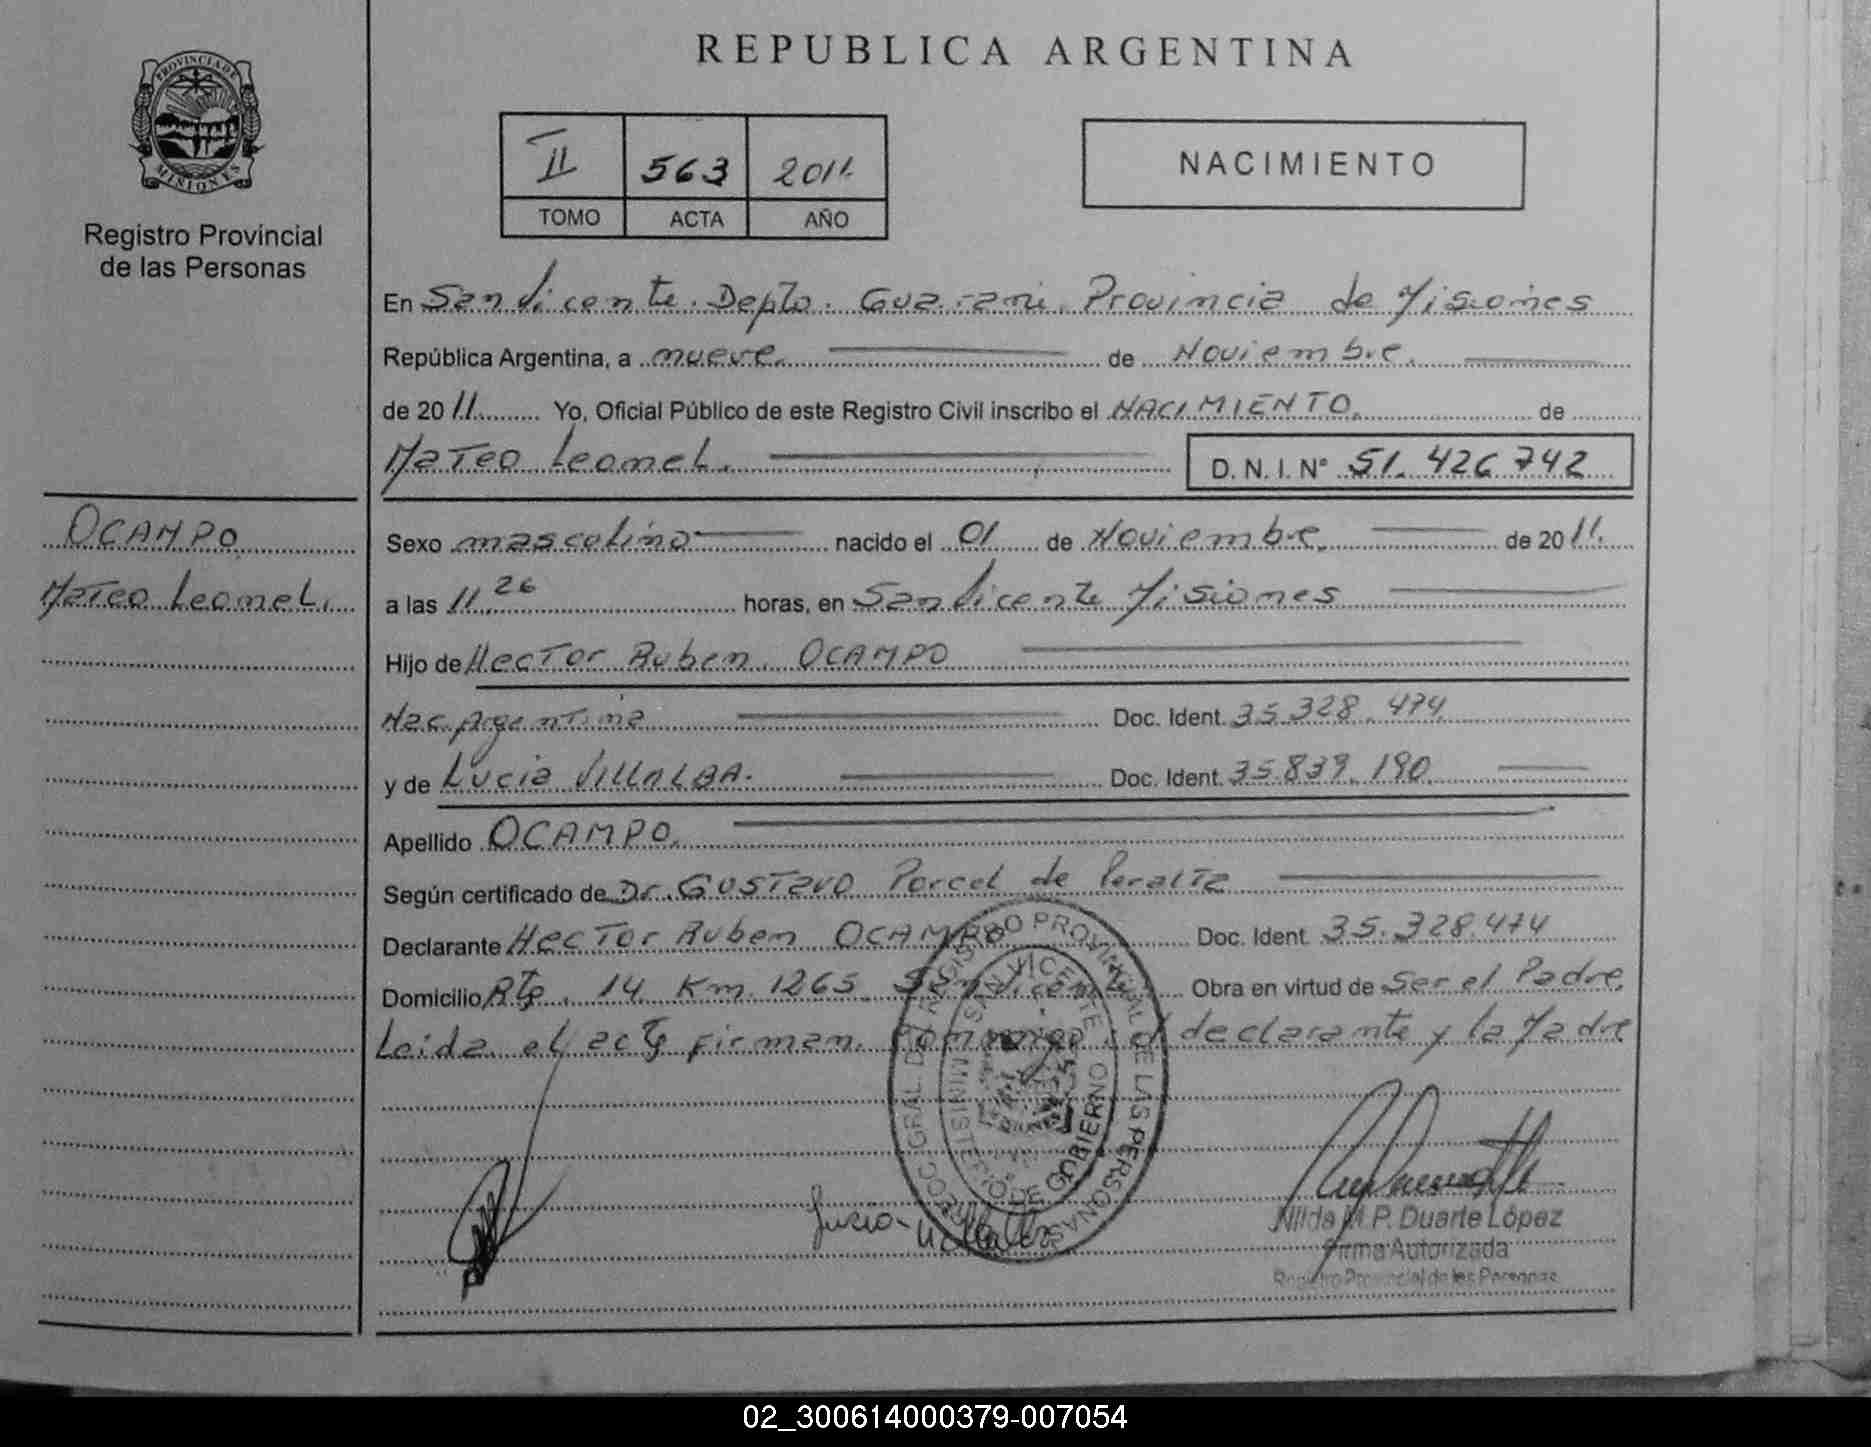 REPUBLICA ARGENTINA
PROVINCIA DE
MISIONES
Registro Provincial
de las Personas
II 563 2011.
TOMO ACTA AÑO
NACIMIENTO
En San Vicente. Depto. Guarani. Provincia de Misiones
República Argentina, a nueve. de Noviembre.
de 2011. Yo, Oficial Público de este Registro Civil inscribo el NACIMIENTO. de
Mateo Leonel. D. N. I. N° 51.426.742
OCAMPO
Mateo Leonel.
Sexo masculino nacido el 01 de Noviembre. de 2011.
a las 11.26 horas, en San Vicente Misiones
Hijo de Hector Ruben. OCAMPO
Nac. Argentina Doc. Ident. 35.328.474
y de Lucia VILLALBA. Doc. Ident. 35.839.190
Apellido OCAMPO.
Según certificado de Dr. Gustavo Porcel de Peralta
Declarante Hector Ruben OCAMPO Doc. Ident. 35.328.474
Domicilio Rta. 14 Km. 1265. San Vicente Obra en virtud de Ser el Padre.
Leida el acta firman. Conmigo: el declarante y la Madre
REGISTRO PROVINCIAL DE LAS PERSONAS
SAN VICENTE
MINISTERIO DE GOBIERNO
Nilda M.P. Duarte López
Firma Autorizada
Registro Provincial de las Personas
02_300614000379-007054